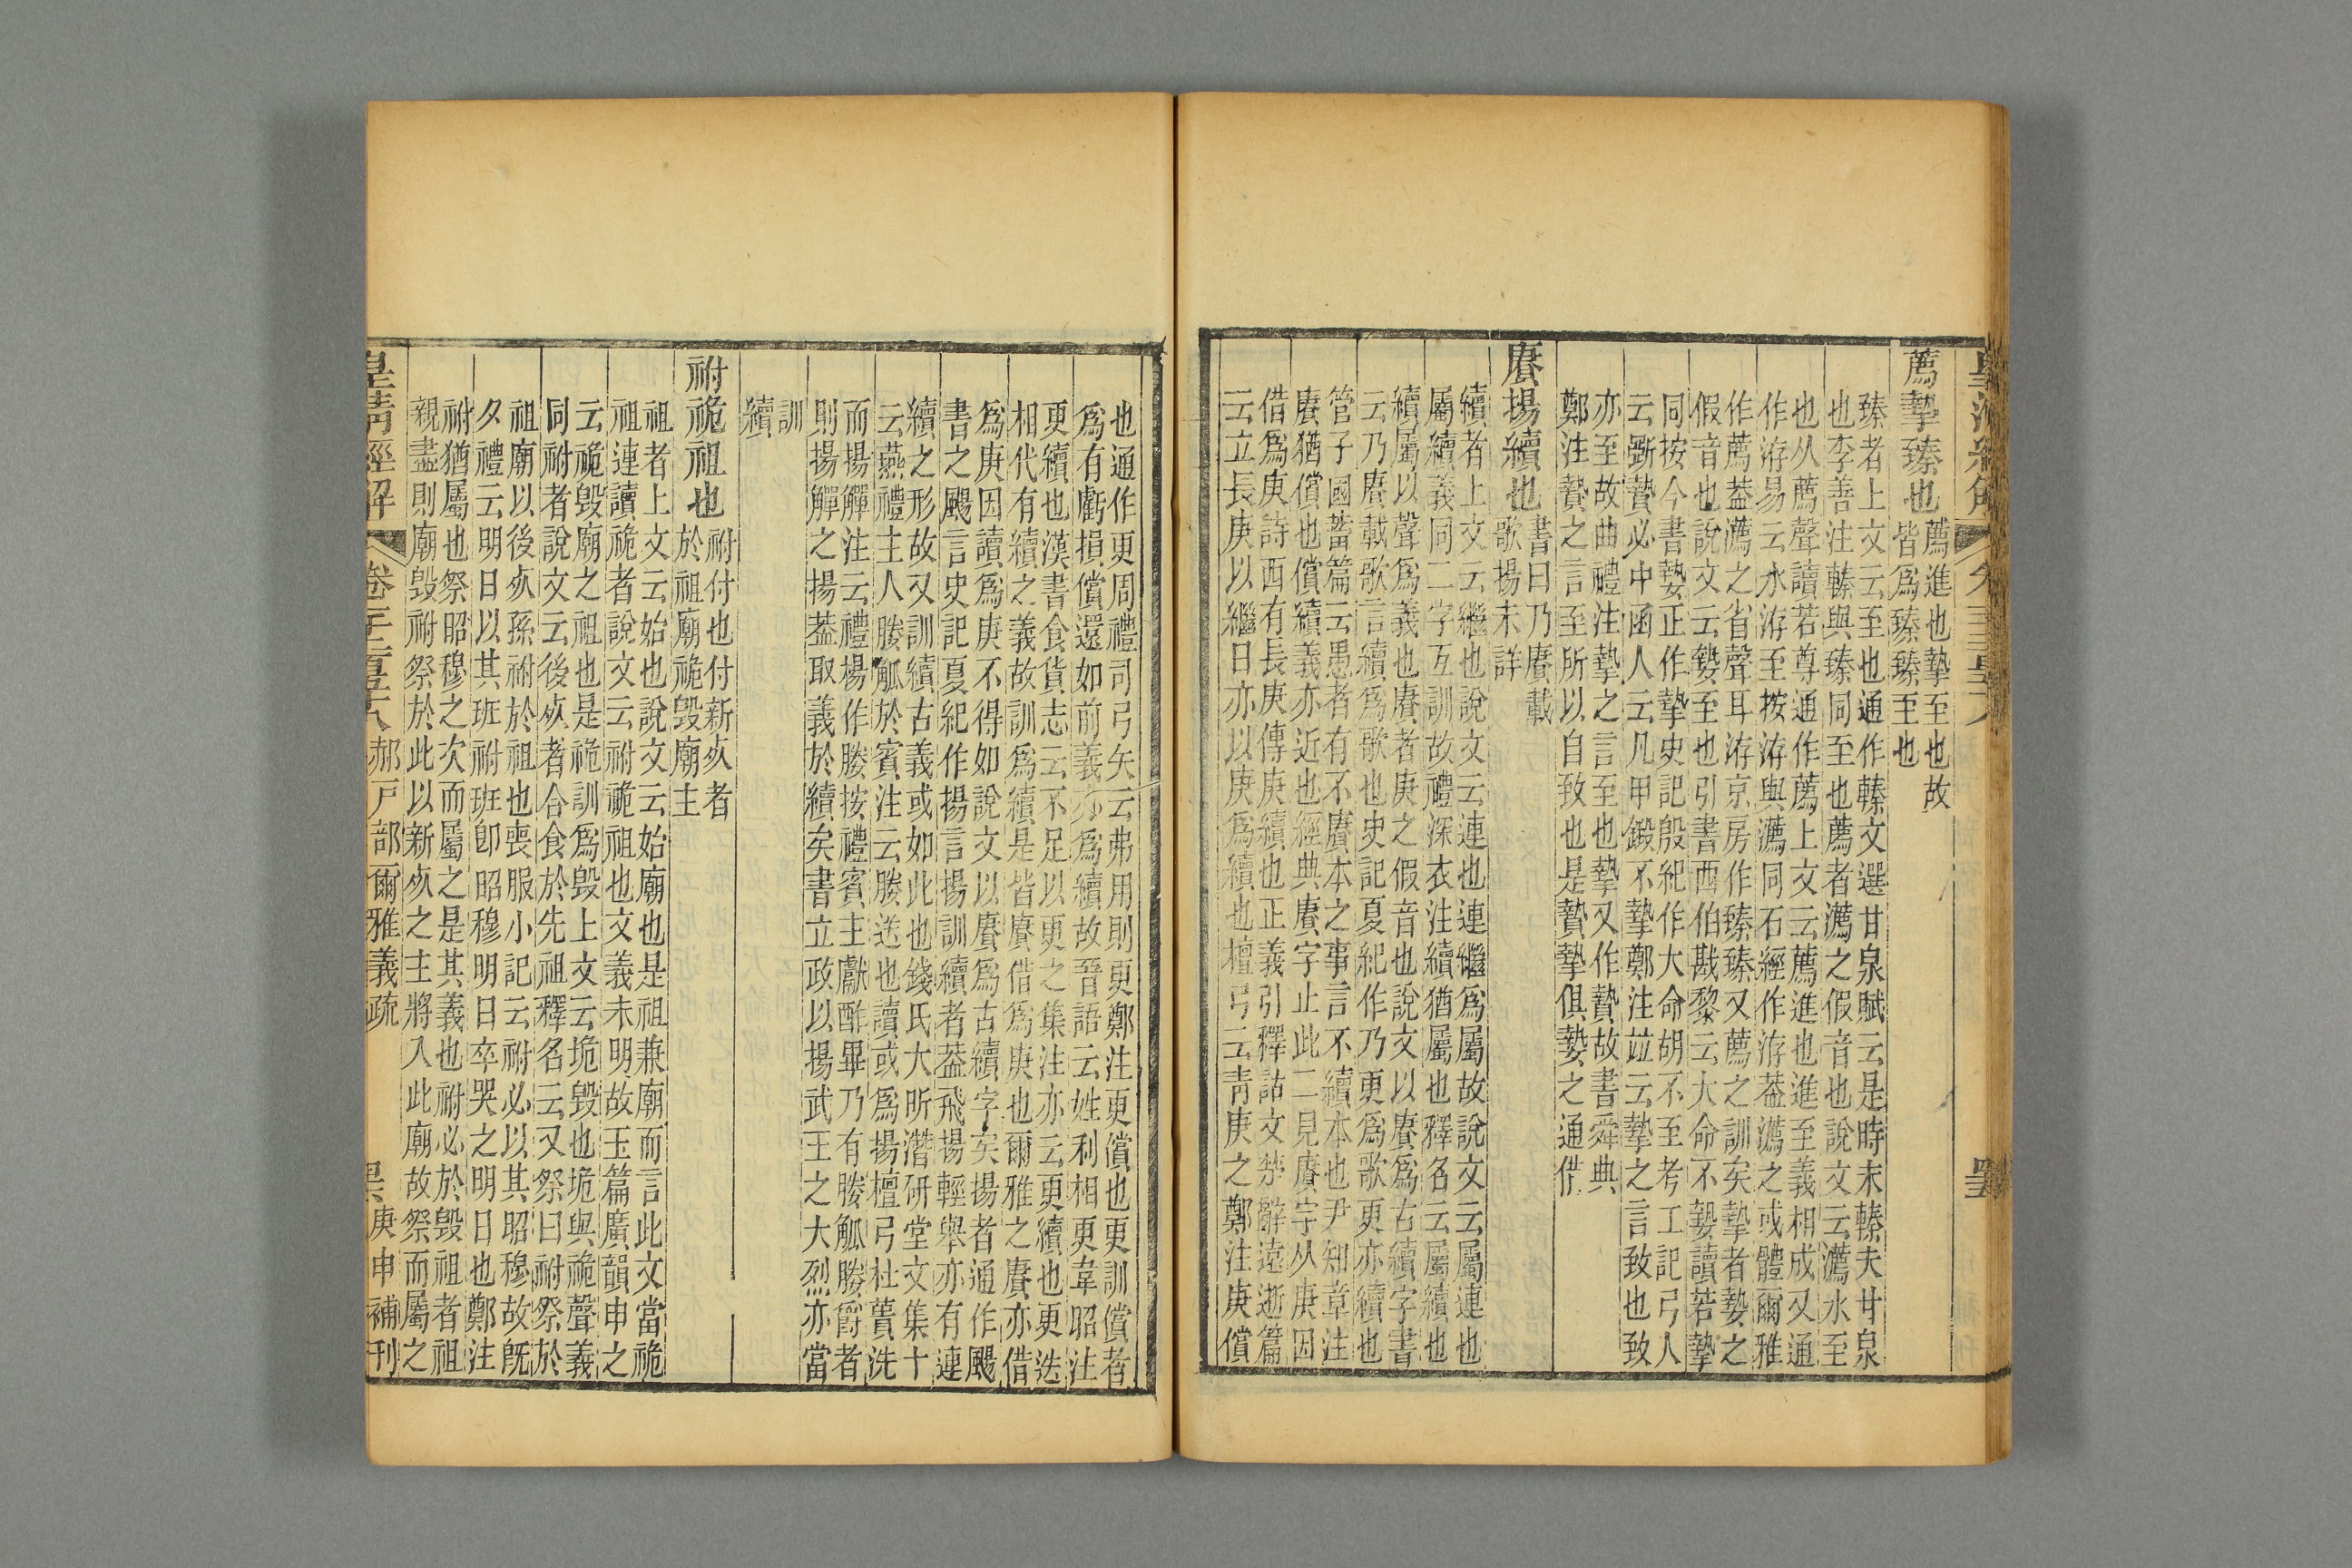 薦摯臻也
薦進也摯至也故
皆爲臻臻至也
臻者上文云至也通作轃文選甘泉賦云是時未轃夫甘泉
也李善注轃與臻同至也薦者瀳之假音也說文云瀳水至
也从薦聲讀若尊通作薦上文云薦進也進至義相成又通
作洊易云水洊至按洊與瀳同石經作洊葢瀳之或體爾雅
作薦葢瀳之省聲耳洊京房作臻臻又薦之訓矣摯者㙯之
假音也說文云㙯至也引書西伯戡黎云大命不㙯讀若摯
同按今書㙯正作摯史記殷紀作大命胡不至考工記弓人
云斲摯必中函人云凡甲鍛不摯鄭注竝云摯之言致也致
亦至故曲禮注摯之言至也摯又作贄故書舜典
鄭注贄之言至所以自致也是贄摯俱㙯之通借
賡揚續也
書曰乃賡載
歌揚未詳
續者上文云繼也說文云連也連繼爲屬故說文云屬連也
屬續義同二字互訓故禮深衣注續猶屬也釋名云屬續也
續屬以聲爲義也賡者庚之假音也說文以賡爲古續字書
云乃賡載歌言續爲歌也史記夏紀作乃更爲歌更亦續也
管子國蓄篇云愚者有不賡本之事言不續本也尹知章注
賡猶償也償續義亦近也經典賡字止此二見賡字从庚因
借爲庚詩西有長庚傳庚續也正義引釋詁文楚辭遠逝篇
云立長庚以繼日亦以庚爲續也檀弓云請庚之鄭注庚償
也通作更周禮司弓矢云弗用則更鄭注更償也更訓償者
爲有虧損償還如前義亦爲續故晉語云姓利相更韋昭注
更續也漢書食貨志云不足以更之集注亦云更續也更迭
相代有續之義故訓爲續是皆賡借爲庚也爾雅之賡亦借
爲庚因讀爲庚不得如說文以賡爲古續字矣揚者通作颺
書之颺言史記夏紀作揚言揚訓續者葢飛揚輕舉亦有連
續之形故又訓續古義或如此也錢氏大昕潛研堂文集十
云燕禮主人媵觚於賓注云媵送也讀或爲揚檀弓杜蕢洗
而揚觶注云禮揚作媵按禮賓主獻酢畢乃有媵觚媵爵者
則揚觶之揚葢取義於續矣書立政以揚武王之大烈亦當
訓
續
祔祪祖也
祔付也付新死者
於祖廟祪毁廟主
祖者上文云始也說文云始廟也是祖兼廟而言此文當祪
祖連讀祪者說文云祔祪祖也文義未明故玉篇廣韻申之
云祪毁廟之祖也是祪訓爲毁上文云垝毁也垝與祪聲義
同祔者說文云後死者合食於先祖釋名云又祭曰祔祭於
祖廟以後死孫祔於祖也喪服小記云祔必以其昭穆故旣
夕禮云明日以其班祔班卽昭穆明日卒哭之明日也鄭注
祔猶屬也祭昭穆之次而屬之是其義也祔必於毁祖者祖
親盡則廟毁祔祭於此以新死之主將入此廟故祭而屬之
皇清經解 卷千二百五十八 郝戶部爾雅義疏 庚申補刊